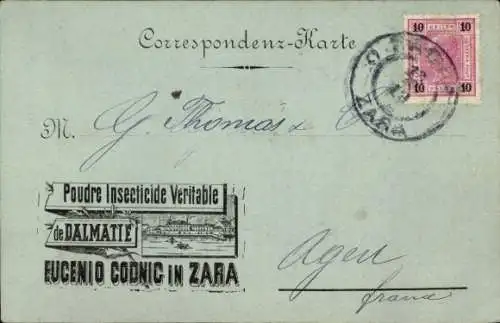 Correspondenz-Karte
10 10
10 10
ZARA
M. G. Thomas &
Poudre Insecticide Veritable
de DALMATIE
EUGENIO CODNIG IN ZARA
Agen
france